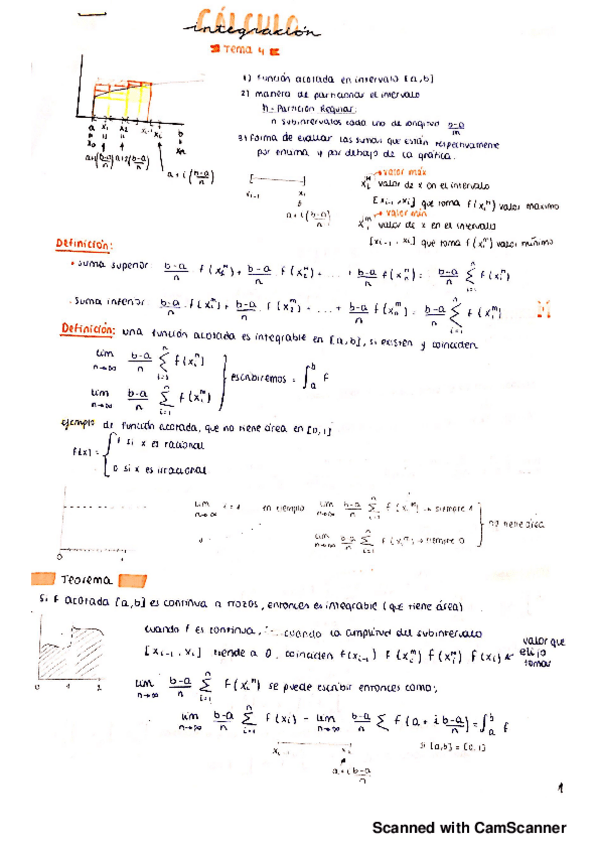 CÁLCULO
integración
Tema 4
1) función acotada en intervalo [a,b]
2) manera de particionar el intervalo
n-Partición Regular:
n subintervalos cada uno de longitud b-a/n
3) Forma de evaluar las sumas que están respectivamente
por encima y por debajo de la gráfica.
a x₁ x₂ xᵢ₋₁ xᵢ b
x₀ xₙ
a+1(b-a/n) a+2(b-a/n)
a+i(b-a/n)
valor máx
xᵢᴹ valor de x en el intervalo
[xᵢ₋₁, xᵢ] que toma f(xᵢᴹ) valor máximo
xᵢ₋₁ xᵢ
a+i(b-a/n)
valor mín
xᵢᵐ valor de x en el intervalo
[xᵢ₋₁, xᵢ] que toma f(xᵢᵐ) valor mínimo
Definición:
suma superior
suma inferior
Definición: una función acotada es integrable en [a,b], si existen y coinciden
lim n→∞ b-a/n Σ i=1 n f(xᵢᴹ)
escribiremos = ∫ₐᵇ f
lim n→∞ b-a/n Σ i=1 n f(xᵢᵐ)
ejemplo de función acotada, que no tiene área en [0,1]
f(x)= 1 si x es racional
0 si x es irracional
lim n→∞
en ejemplo lim n→∞ b-a/n Σ i=1 n f(xᵢᴹ) → siempre 1
no tiene área
lim n→∞ b-a/n Σ i=1 n f(xᵢᵐ) → siempre 0
0 1
Teorema
Si f acotada [a,b] es continua a trozos, entonces es integrable (que tiene área)
cuando f es continua, cuando la amplitud del subintervalo
[xᵢ₋₁, xᵢ] tiende a 0, coinciden f(xᵢ₋₁) f(xᵢᴹ) f(xᵢᵐ) f(xᵢ)
valor que
elijo
tomar
0 1 2
lim n→∞ b-a/n Σ i=1 n f(xᵢᴹ) se puede escribir entonces como:
lim n→∞ b-a/n Σ i=1 n f(xᵢ) = lim n→∞ b-a/n Σ f(a+i b-a/n) = ∫ₐᵇ f
si [a,b] = [0,1]
xᵢ₋₁ xᵢ
a+i b-a/n
1
Scanned with CamScanner